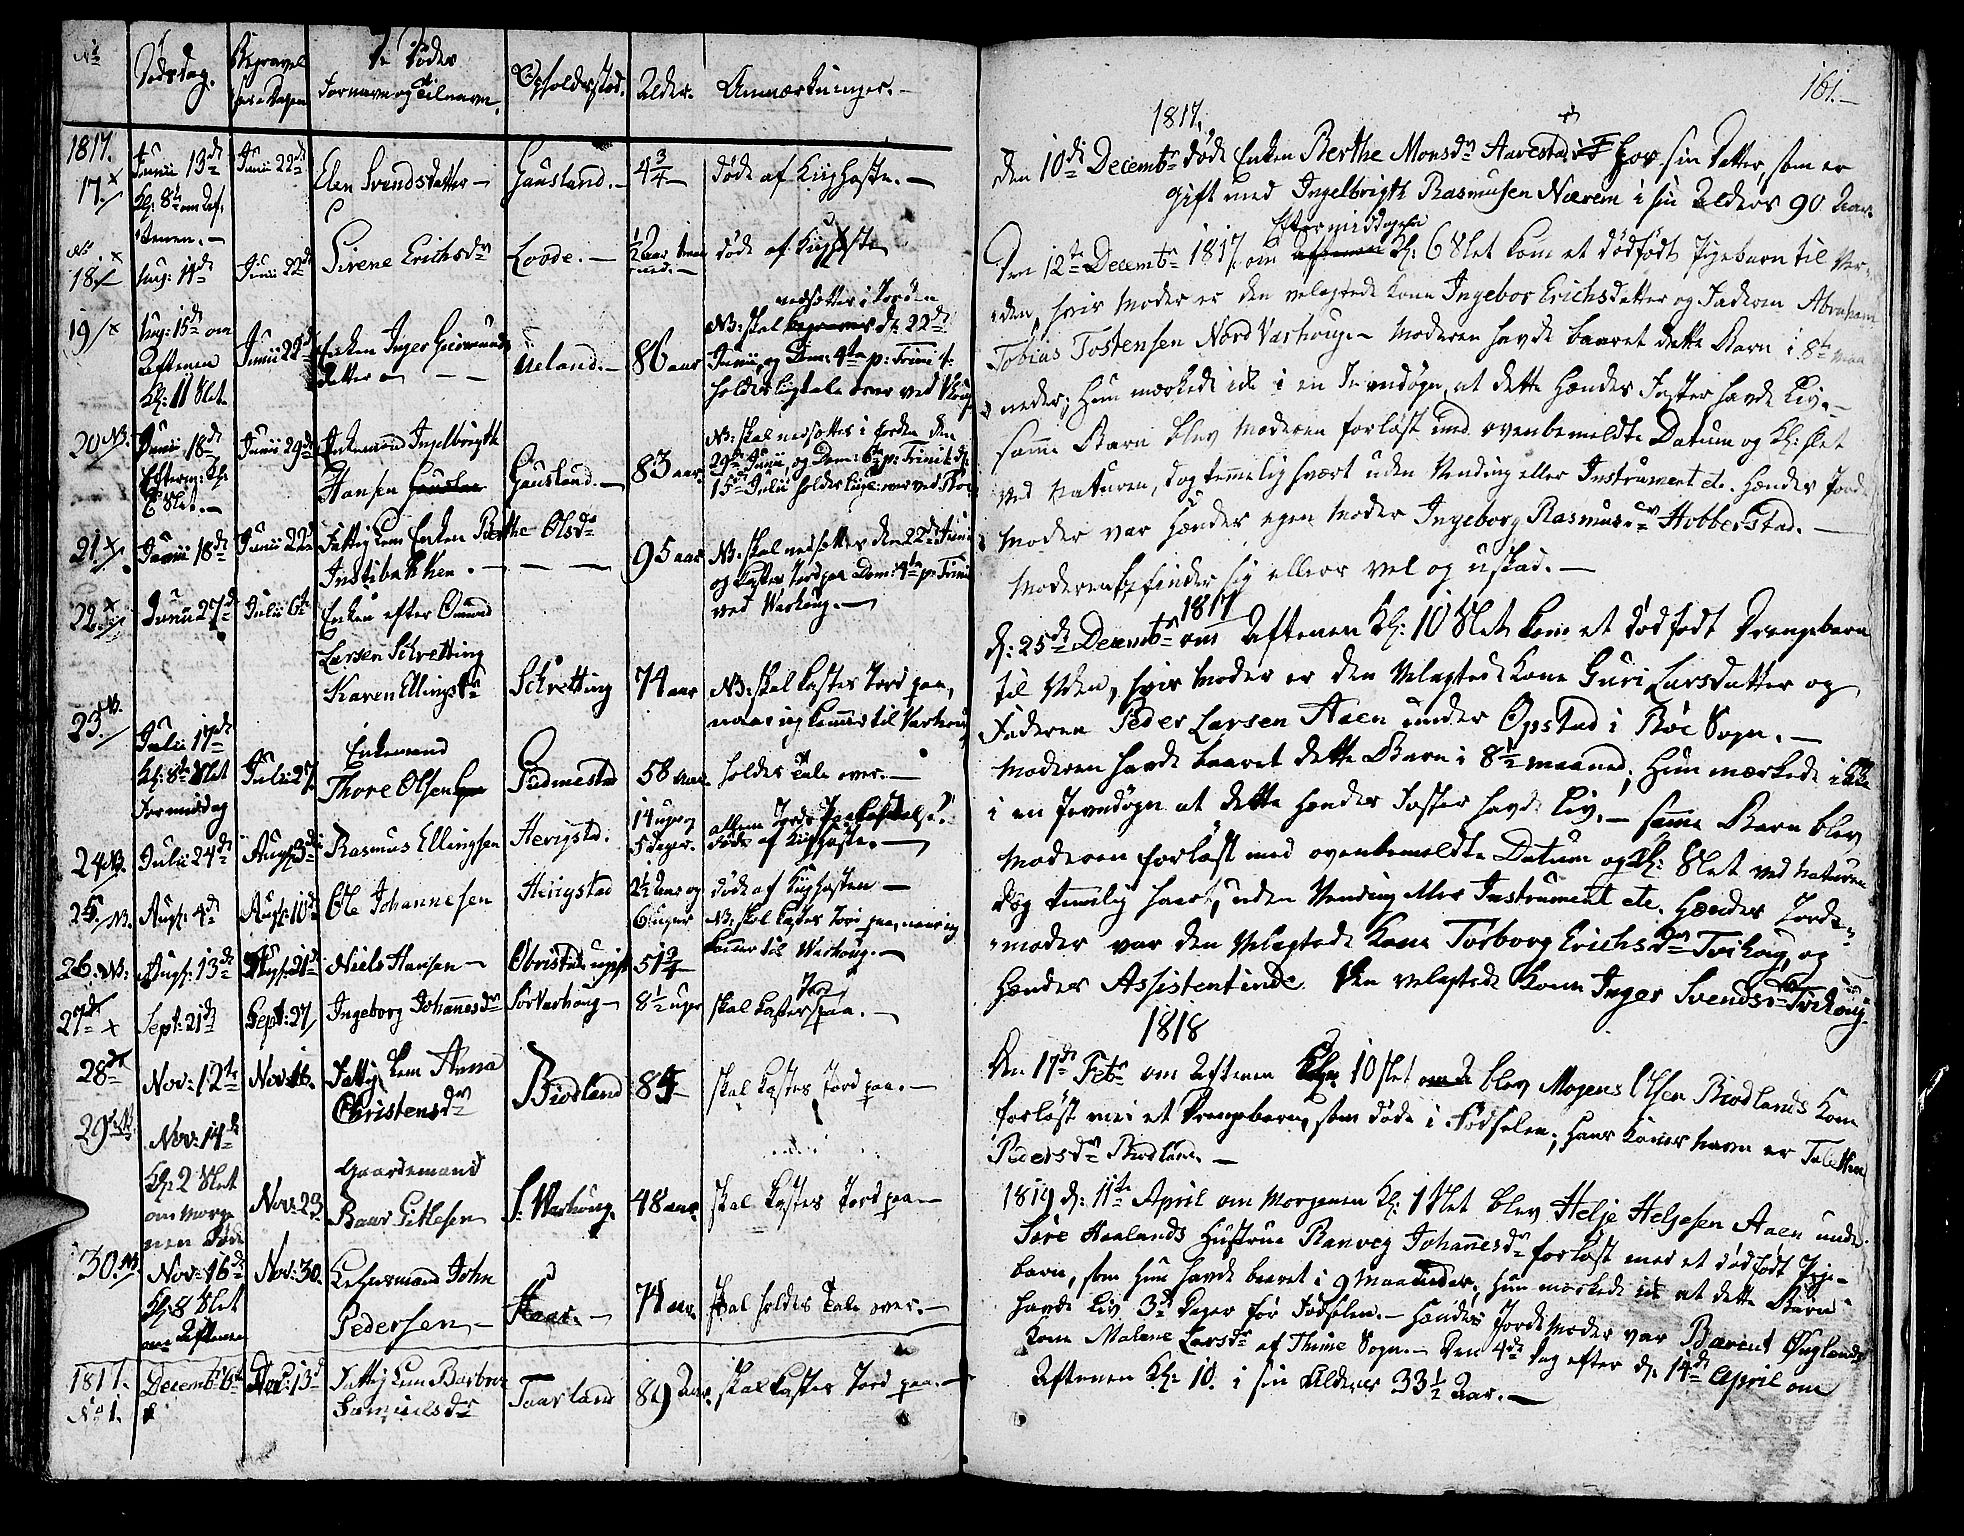 No
Dødsdag.
Begravel
ses Dagen
De Døde
Fornavn og Tilnavn.
Opholdssted.
Alder.
Anmærkninger.
1817.
17. Junii 13de Kl: 8 om Af,
tenen. Junii 22de Elen Svendsdatter Gausland. 4 3/4 døde af Kiighoste.
18 hujs: 14de Junii 22de Sirene Erichsdr Lode. 1/2 Aar døde af Kiighoste
19 hujs: 15de om
Aftenen
Kl: 11 Slet Junii 22de Enken Inger Giermunds
datter Ueland. 86 aar
NB: skal begraves nedsættes i Jorden d: 22de
Junii, og Dom: 4ta p: Trinit:
holdes Ligtale over ved Whoug
20 NB. Junii 18de
Efterm: Kl:
Slet. Junii 29de Enkemand Ingelbrigth
Hansen Gausland. 83 aar.
NB: skal nedsættes i Jorden den
29de Junii, og Dom: 6te p: Trinit: d:
15de Julii holdes Liigt: over ved
21 Junii 18de Junii 22de Fattig Lem Enken Berthe Olsdr
Instibakken. 95 aar
NB: skal nedsættes den 22de Junii
og kastes Jord paa Dom: 4ta p: Trinit
ved Warhoug.
22. Junii 27de Julii 6te Enken efter Omund
Larsen Schretting
Karen Ellingsdr Schretting 74 aar
NB: skal kastes Jord paa,
naar jeg kommer til Varhoug
23. NB. Julii 17de
Kl: 8te Slet
Formiddag Julii 27. Enkemand
Thore Olsen Gudmestad 58 aar holdes Tale over.
24 NB. Julii 24de Augs: 3die Rasmus Ellingsen Herigstad. 14 uger og
5 Dager.
allene Jords Paakastelse.
døde af Kiighoste.
25. NB. Augs: 4de Augs: 10de Ole Johannesen Herigstad 2 1/2 Aar og
6 uger
døde af Kiighosten
NB: skal kastes Jord paa, naar jeg
kommer til Warhoug.
26. NB. Augs: 13de Augs: 21de Niels Hansen Obrestad 51 3/4
27de Sept: 21de Sept: 27 Ingeborg Johannesdr Sør Varhoug 8 1/2 uger skal kastes Jord paa.
28de Nov: 12te Nov: 16. Fattig Lem Anna
Christensdr Brodland 84 skal kastes Jord paa.
29. NB Nov: 14de
Kl: 2 Slet
om Morge
nen døde Nov: 23. Gaardmand
Baar Gitlesen S: Warhoug. 48 aar. skal kastes Jord paa
30. NB Nov: 16de
Kl: 8 Slet
om Aftenen Nov: 30. Leiermand John
Pedersen Haar. 74 aar. skal holdes Tale over.
1817.
No 1. Decembr 6te Dec: 13de Fattig Lem Barbroe
Samuelsdr Taarland 89 Aar. skal kastes Jord paa.
161.
1817.
Den 10de Decembr døde Enken Berthe Monsdr Aarestad hos sin Datter, som er
gift med Ingelbrigth Rasmusen Nærem i sin Alders 90 Aar.
Den 12te Decembr 1817. om Aftenen Eftermiddagen Kl: 6 Slet kom et dødfødt Pigebarn til Ver,
den, hvis Moder er den velagtede Kone Ingebor Erichsdatter og Faderen Abraham
Tobias Tostensen Nord Varhoug. Moderen havde baaret dette Barn i 8te Maa
neder; Hun mærkede ikke i en Jevndøgn, at dette hendes Foster havde Liv.
samme Barn blev Moderen forløst med ovenbemeldte Datum og Kl: slet
ved Naturen, dog temmelig svært uden Vending eller Instrument etc. Hendes Jorde
Moder var hendes egen Moder Ingeborg Rasmusdr Hobberstad.
Moderen befinder sig ellers vel og uskad.
1817
d: 25de Decembr om Aftenen Kl: 10 Slet kom et dødfødt Drengebarn
til Verden, hvis Moder er den Velagtede Kone Guri Larsdatter og
Faderen Peder Larsen Aaen under Opstad i Böe Sogn.
Moderen havde baaret dette Barn i 8 1/2 maaned; Hun mærkede ikke
i en Jevndøgn at dette hendes Foster havde Liv. samme Barn blev
Moderen forløst med ovenbemeldte Datum og Kl: Slet ved Naturen
dog temmelig haart, uden Vending eller Instrument etc. Hendes Jorde,
moder var den Velagtede Kone Torborg Erichsdr Tvihoug, og
hendes Assistentinde den velagtede Kone Inger Svendsdr Tvihoug.
1818
Den 17de Febr om Aftenen Kl: 10 slet blev Mogens Olsen Brodlands Kone
forløst med et Drengebarn, som døde i Fødselen; hans Kones Navn er
Pedersdr Brodland.
1819 d: 11te April om Morgenen Kl: 1 Slet blev Helje Heljesen Aaen under
Søre Haalands Hustrue Ranveg Johannesdr forløst med et dødfødt Pige-
barn, som Hun havde baaret i 9 Maaneder. Hun mærkede ikke at dette Barn
havde Liv 3de Dager før Fødselen. Hendes Jorde Moder var Bærent Øuglands
Kone Malene Larsdr af Thime Sogn. Den 4de Dag efter d: 14de April om
Aftenen Kl: 10. i sin Alders 33 1/2 Aar.